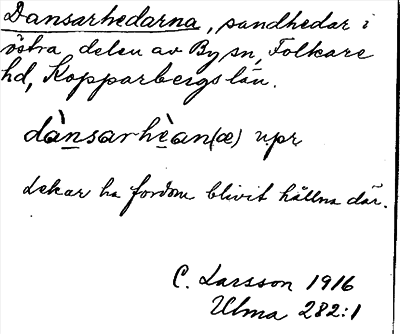 Dansarhedarna, sandhedar i
östra delen av By sn, Folkare
hd, Kopparbergs län.
dànsarhèan(æ) upr
Lekar ha fordom blivit hållna där.
C. Larsson 1916
Ulma 282:1